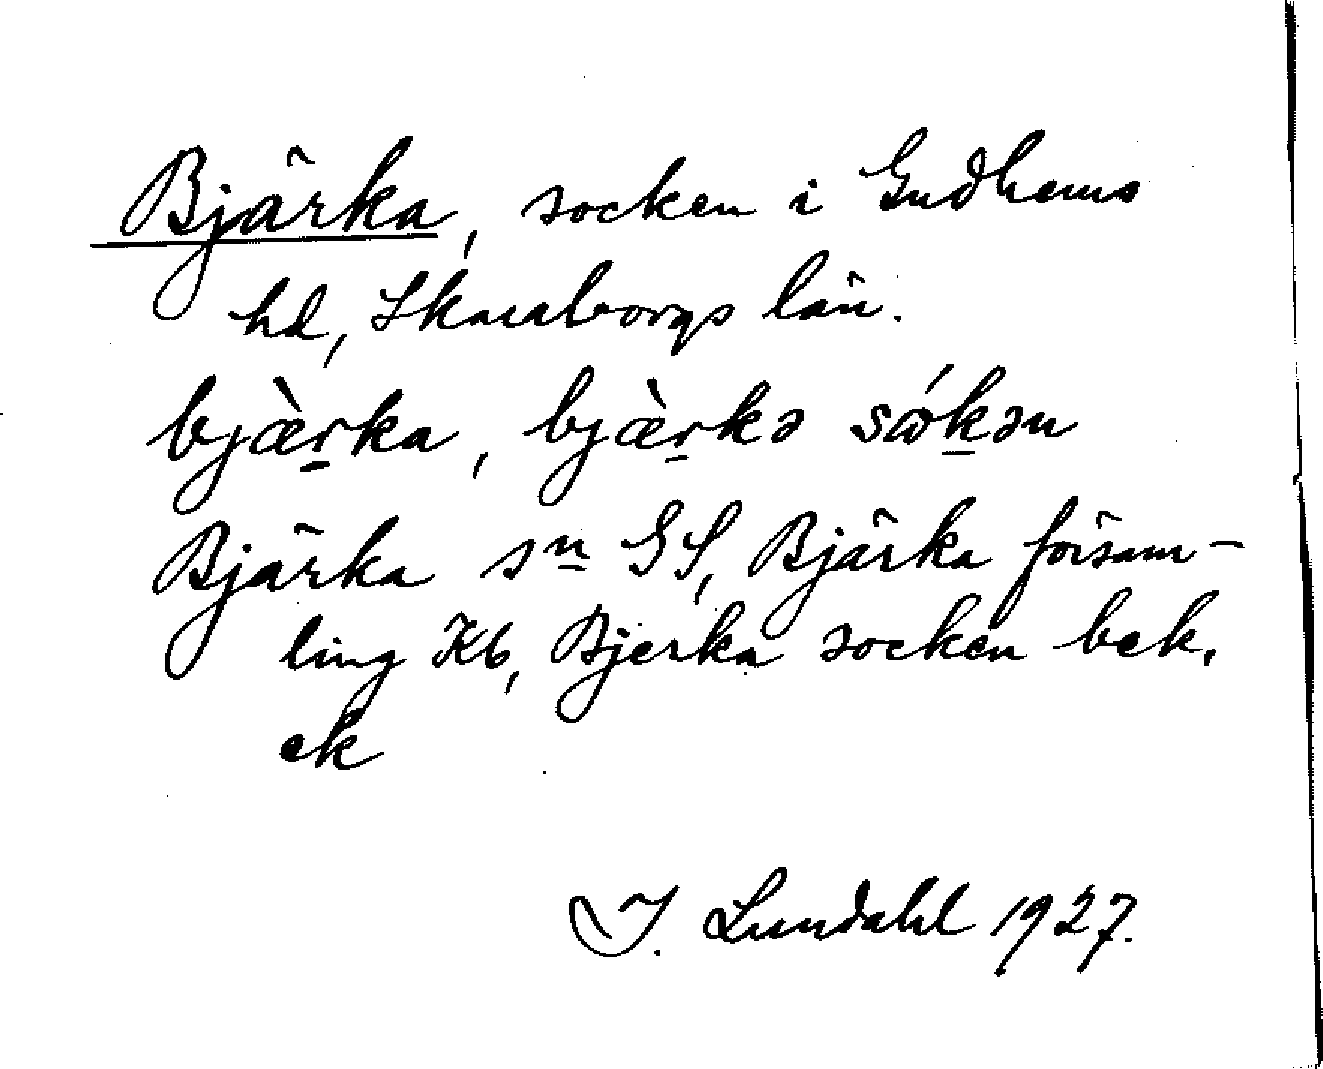 Bjärka, socken i Gudhems
hd, Skaraborgs län.
bjæ̀r̠ka, bjæ̀r̠kə sǿk̠ən
Bjärka sn GS, Bjärka försam-
ling Kb, Bjerka socken bek.
ek
I. Lundahl 1927.